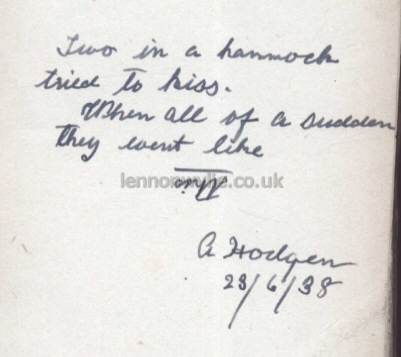 Two in a hammock
tried to kiss.
When all of a sudden
they went like
this
lennonwylie.co.uk
A Hodgen
23/6/38